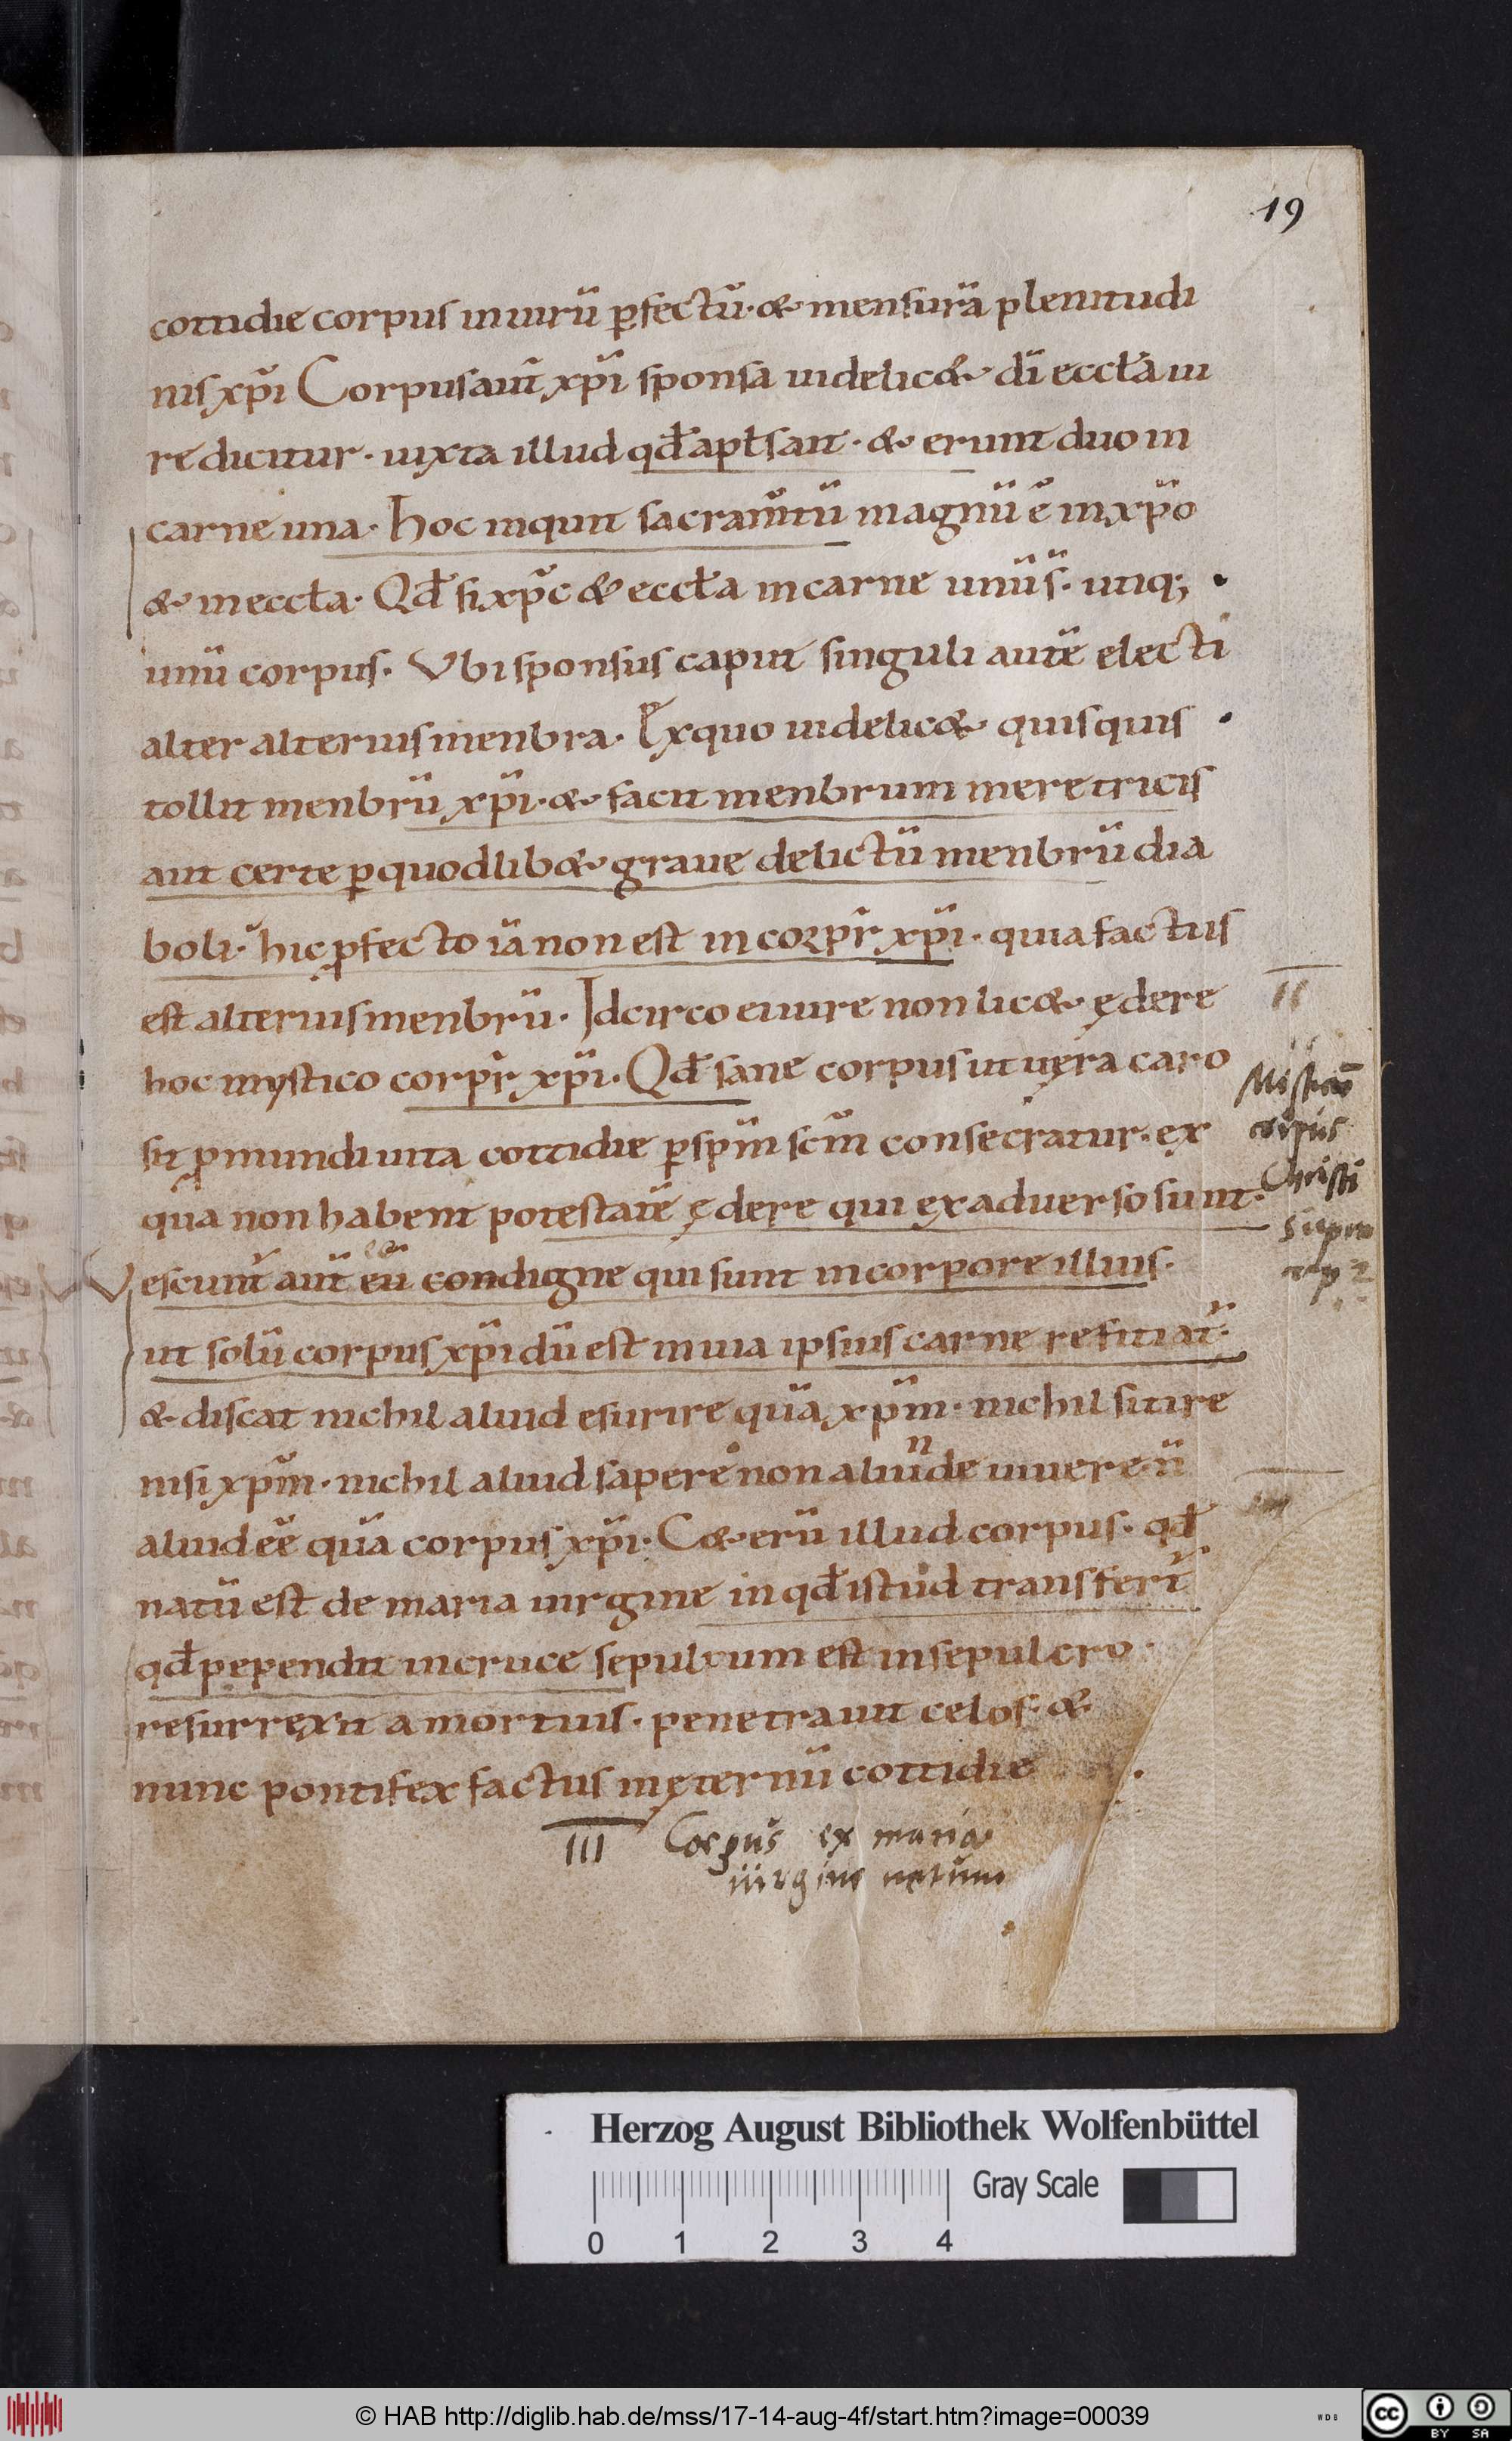 19
cottidie corpus in uirū ꝑfectū· & mensurā plenitudi
nis xp̄i Corpus aut̄ xp̄i sponsa uidelic& dī ecct̄a iu
re dicitur· iuxta illud qđ apt̄s ait· & erunt duo in
carne una· hoc inquit sacram̄tū magnū ē in xp̄o
& in ecct̄a· Qđ si xp̄c & ecct̄a in carne unū s̄· utiq;
unū corpus· Vbi sponsus caput singuli autē electi
alter alterius menbra· Ex quo uidelic& quisquis
tollit menbrū xp̄i· & facit menbrum meretricis
aut certe ꝑ quodlib& graue delictū menbrū dia
boli· hic ꝓfecto iā non est in corpr̄ xp̄i· quia factus
est alterius menbrū· Idcirco ei iure non lic& ędere
hoc mystico corpr̄ xp̄i· Qđ sane corpus ut uera caro
sit ꝓ mundi uita cottidie ꝑ sp̄m sc̄m consecratur· ex
qua non habent potestatē ędere qui ex aduerso sunt·
Vescunt̄ aut̄ eū condigne qui sunt in corpore illius·
ut solū corpus xp̄i dū est in uia ipsius carne refitiat̄·
& discat nichil aliud esurire quā xp̄m· nichil sitire
nisi xp̄m· nichil aliud sapere non aliunde uiuere n̄
aliud eē quā corpus xp̄i· C&erū illud corpus· qđ
natū est de maria uirgine in qđ istud transfert̄
qđ pependit in cruce sepultum est in sepulcro·
resurrexit a mortuis· penetrauit celos· &
nunc pontifex factus in ęternū cottidie
II
Misticū
corpus
Christi
supra
cap 2
III Corpus ex maria
uirgine natum
Herzog August Bibliothek Wolfenbüttel
Gray Scale
0 1 2 3 4
© HAB http://diglib.hab.de/mss/17-14-aug-4f/start.htm?image=00039
WDB
cc
BY SA